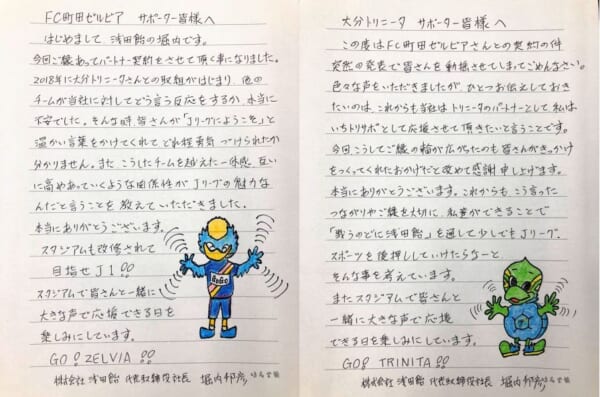 FC町田ゼルビア サポーター皆様へ
はじめまして、浅田飴の堀内です。
今回ご縁あってパートナー契約をさせて頂く事になりました。
2018年に大分トリニータさんとの取組がはじまり、他の
チームが当社に対してどう言う反応をするか、本当に
不安でした。そんな時、皆さんが「Jリーグにようこそ」と
温かい言葉をかけてくれて どれ程勇気づけられたか
分かりません。また こうしたチームを越えた一体感、互い
に高めあっていくような関係性が Jリーグの魅力な
んだと言うことを 教えていただきました。
本当にありがとうございます。
スタジアムも改修されて
目指せ J1!!
スタジアムで皆さんと一緒に
大きな声で応援できる日を
楽しみにしています。
GO! ZELVIA !!
株式会社 浅田飴 代表取締役社長 堀内邦彦
大分トリニータ サポーター皆様へ
この度はFC町田ゼルビアさんとの契約の件
突然の発表で皆さんを動揺させてしまってごめんなさい。
色々な声をいただきましたが、ひとつお伝えしておき
たいのは、これからも当社は トリニータのパートナーとして、私は
いちトリサポとして応援させて頂きたいと言うことです。
今回こうしてご縁の輪が広がったのも皆さんがきっかけ
をつくってくれたおかげだと改めて感謝申し上げます。
本当にありがとうございます。これからも、こう言った
つながりやご縁を大切に、私達ができることで
「戦うのどに浅田飴」を通して少しでもJリーグ、
スポーツを後押ししていけたらなーと
そんな事を考えています。
またスタジアムで皆さんと
一緒に大きな声で応援
できる日を楽しみにしています。
GO! TRINITA !!
株式会社 浅田飴 代表取締役社長 堀内邦彦